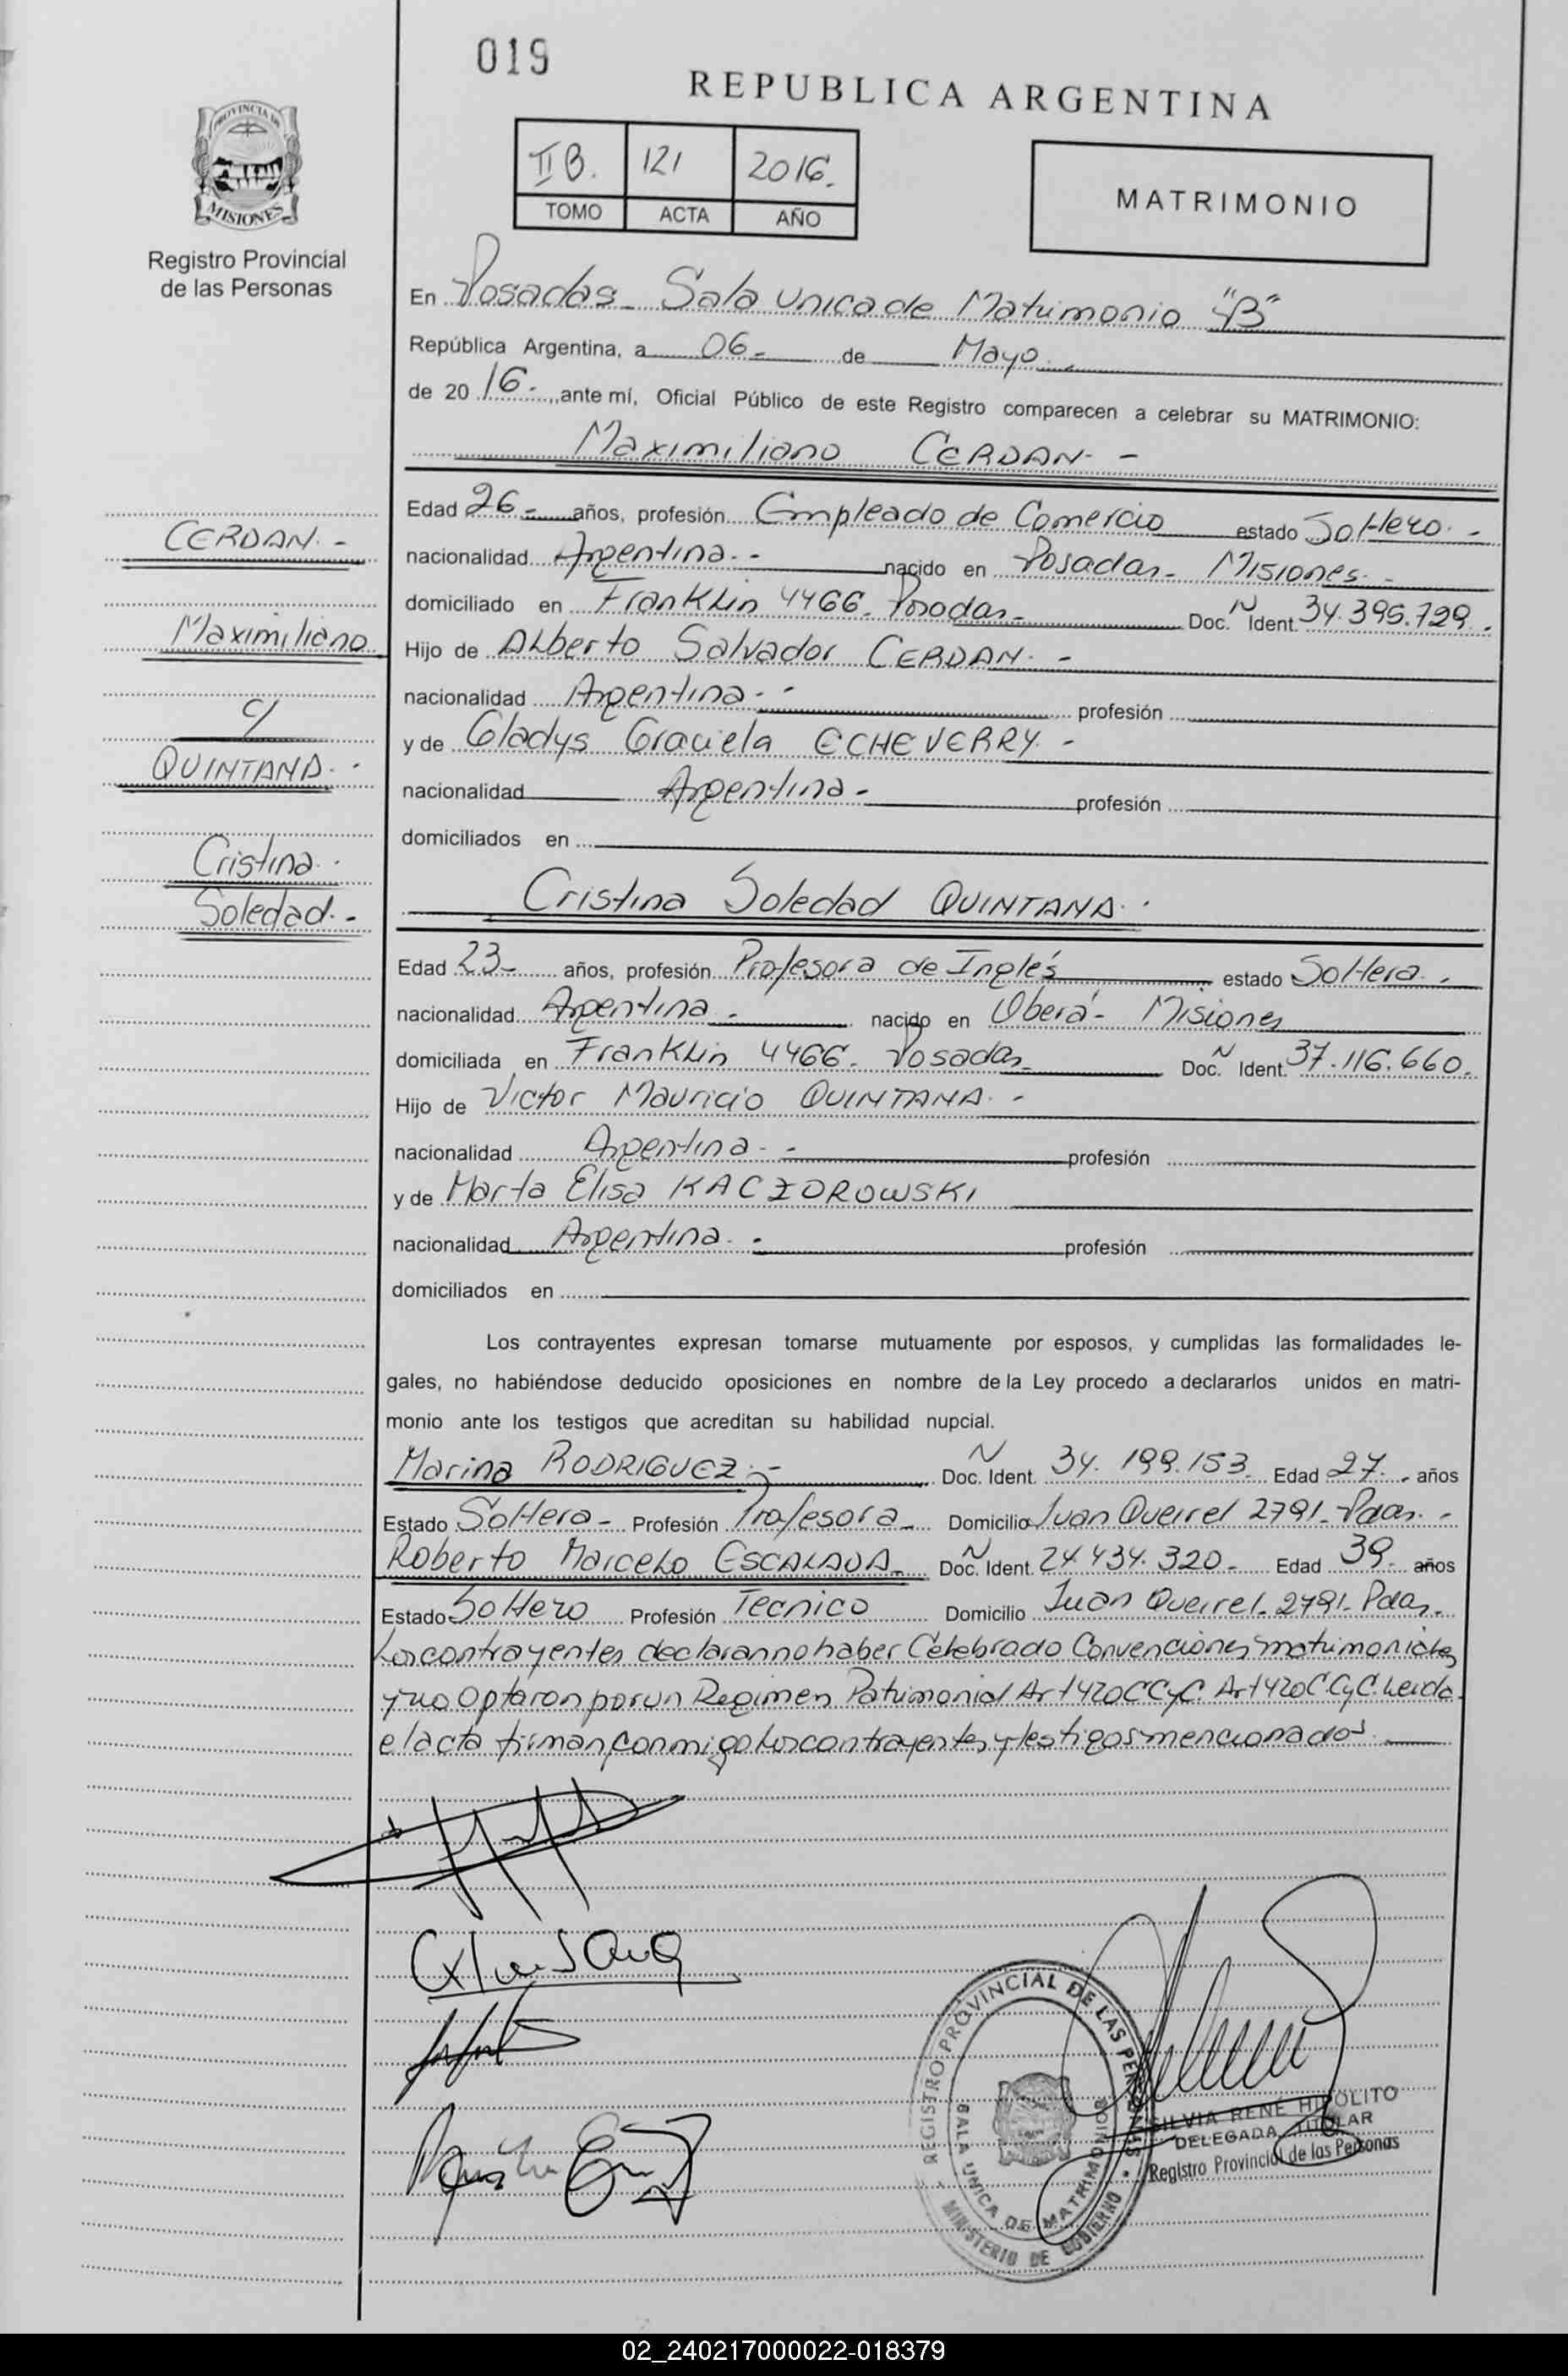 019
REPUBLICA ARGENTINA
PROVINCIA DE
MISIONES
Registro Provincial
de las Personas
II B. 121 2016.
TOMO ACTA AÑO
MATRIMONIO
En Posadas - Sala unica de Matrimonio "B"
República Argentina, a 06 - de Mayo.
de 20 16. ,ante mí, Oficial Público de este Registro comparecen a celebrar su MATRIMONIO:
Maximiliano CERDAN. -
CERDAN. -
Maximiliano
c/
QUINTANA. -
Cristina.
Soledad. -
Edad 26 - años, profesión Empleado de Comercio estado Soltero. -
nacionalidad Argentina. - nacido en Posadas - Misiones. -
domiciliado en Franklin 4466 - Posadas - Doc. N Ident. 34.395.729.
Hijo de Alberto Salvador CERDAN. -
nacionalidad Argentina. - profesión
y de Gladys Graciela ECHEVERRY. -
nacionalidad Argentina - profesión
domiciliados en
Cristina Soledad QUINTANA.
Edad 23 - años, profesión Profesora de Inglés estado Soltera. -
nacionalidad Argentina - nacido en Oberá - Misiones
domiciliada en Franklin 4466 - Posadas - Doc. N Ident. 37.116.660.
Hijo de Victor Mauricio QUINTANA. -
nacionalidad Argentina. - profesión
y de Marta Elisa KACZOROWSKI
nacionalidad Argentina. - profesión
domiciliados en
Los contrayentes expresan tomarse mutuamente por esposos, y cumplidas las formalidades le-
gales, no habiéndose deducido oposiciones en nombre de la Ley procedo a declararlos unidos en matri-
monio ante los testigos que acreditan su habilidad nupcial.
Marina RODRIGUEZ. - Doc. N Ident. 34.199.153 Edad 27. años
Estado Soltera - Profesión Profesora - Domicilio Juan Queirel 2791 - Pdas. -
Roberto Marcelo ESCALADA - Doc. N Ident. 24.434.320 - Edad 39. años
Estado Soltero Profesión Tecnico Domicilio Juan Queirel - 2791 - Pdas. -
Los contrayentes declaran no haber Celebrado Convenciones matrimoniales
y no Optaron por un Regimen Patrimonial Art 420 CCyC. Art 420 C CyC. Leida
el acta firman conmigo los contrayentes y testigos mencionados
REGISTRO PROVINCIAL DE LAS PERSONAS
SALA UNICA DE MATRIMONIOS
MINISTERIO DE GOBIERNO
SILVIA RENÉ HIPÓLITO
DELEGADA TITULAR
Registro Provincial de las Personas
02_240217000022-018379